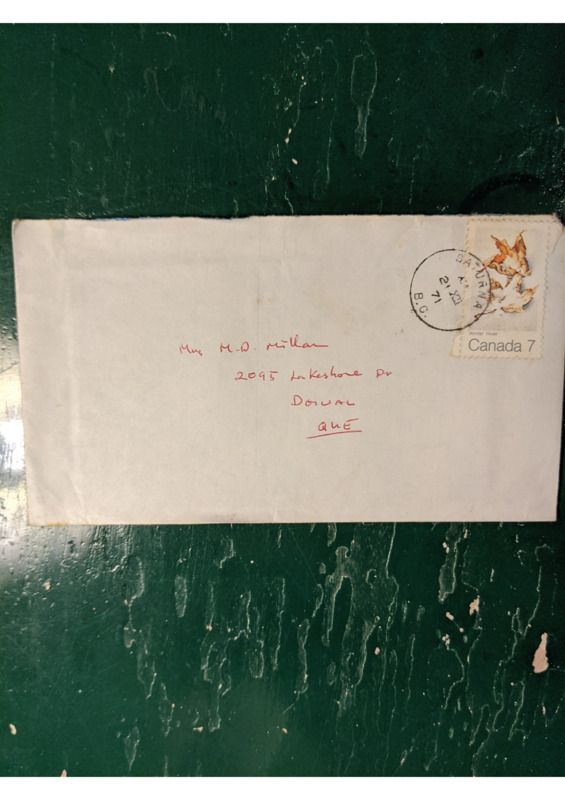 SATURNA
21 XII
71
B.C.
Canada 7
Mrs M.D. Millan
2095 Lakeshore Dr
DORVAL
QUE